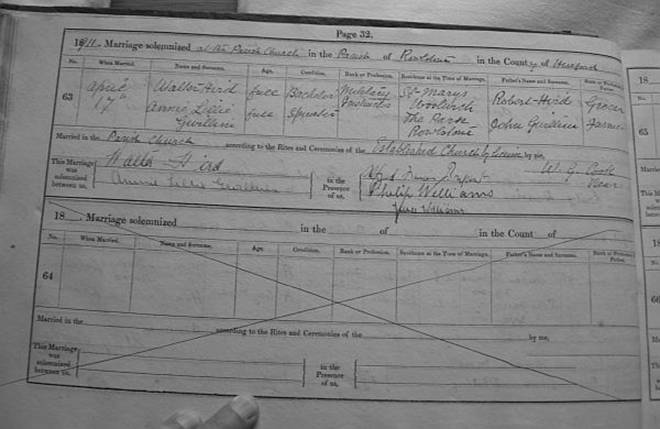 Page 32.
1911. Marriage solemnized at the Parish Church in the Parish of Rowlstone in the County of Hereford
No. When Married. Name and Surname. Age. Condition. Rank or Profession. Residence at the Time of Marriage. Father's Name and Surname. Rank or Profession of Father.
63 April 17th Walter Hird full Bachelor Military Instructor St Marys Woolwich Robert Hird Grocer
Annie Lillie Gwillim full Spinster The Park Rowlstone John Gwillim Farmer
Married in the Parish Church according to the Rites and Ceremonies of the Established Church by by me,
W. G.
This Marriage was solemnized between us, Walter Hird
Annie Lillie Gwillim
in the Presence of us,
Philip Williams
Williams
18 Marriage solemnized in the of in the County of
No. When Married. Name and Surname. Age. Condition. Rank or Profession. Residence at the Time of Marriage. Father's Name and Surname. Rank or Profession of Father.
64
Married in the according to the Rites and Ceremonies of the by me,
This Marriage was solemnized between us,
in the Presence of us,
18
No.
65
Married
This Marriage was solemnized between us,
18
No.
66
Married
This Marriage was solemnized between us,